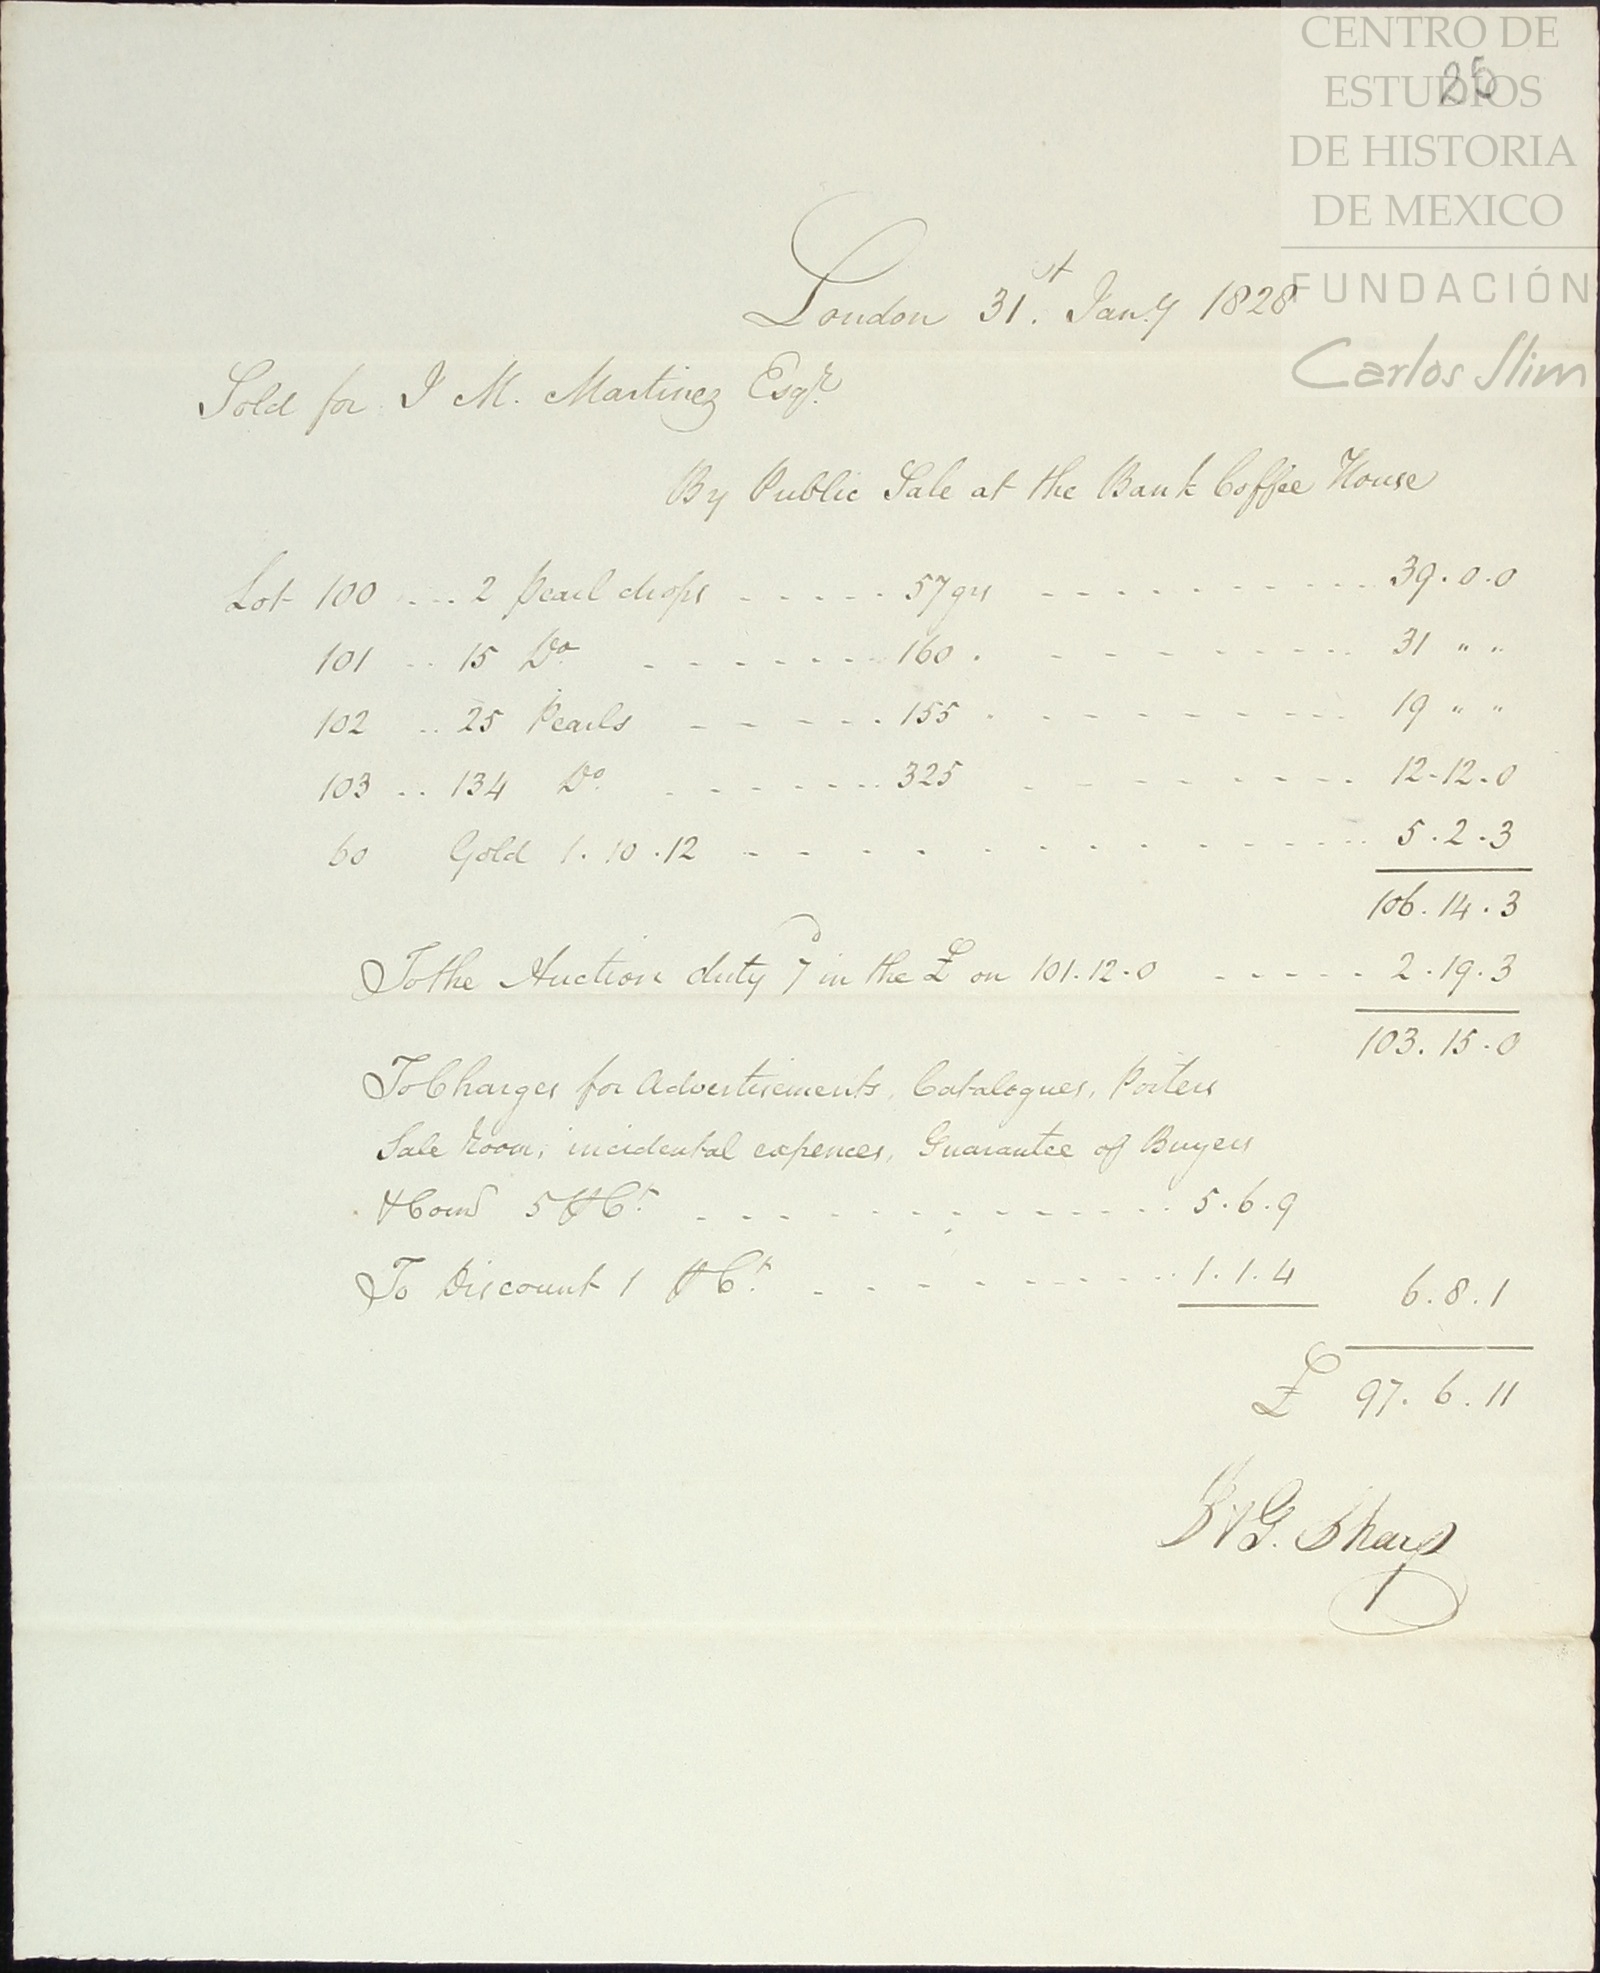 CENTRO DE
ESTUDIOS
DE HISTORIA
DE MEXICO
FUNDACIÓN
Carlos Slim
London 31.st Jan.y 1828
Sold for I M. Martinez Esqr.
By Public Sale at the Bank Coffee House
Lot 100 ... 2 Pearl drops ----- 57 grs --------- 39.0.0
101 .. 15 Do. ------- 160. -------- 31 " "
102 .. 25 Pearls ----- 155. -------- 19 " "
103 .. 134 Do. ------- 325 -------- 12-12.0
60 Gold 1.10.12 ----------- 5.2.3
106.14.3
To the Auction duty 7d in the £ on 101.12.0 ----- 2.19.3
103.15.0
To Charges for Advertisements, Catalogues, Porters
Sale Room, incidental expences, Guarantee of Buyers
& Comn 5 ⅌ Ct. ----------- 5.6.9
To Discount 1 ⅌ Ct. --------- 1.1.4 6.8.1
£ 97.6.11
& G. Sharp